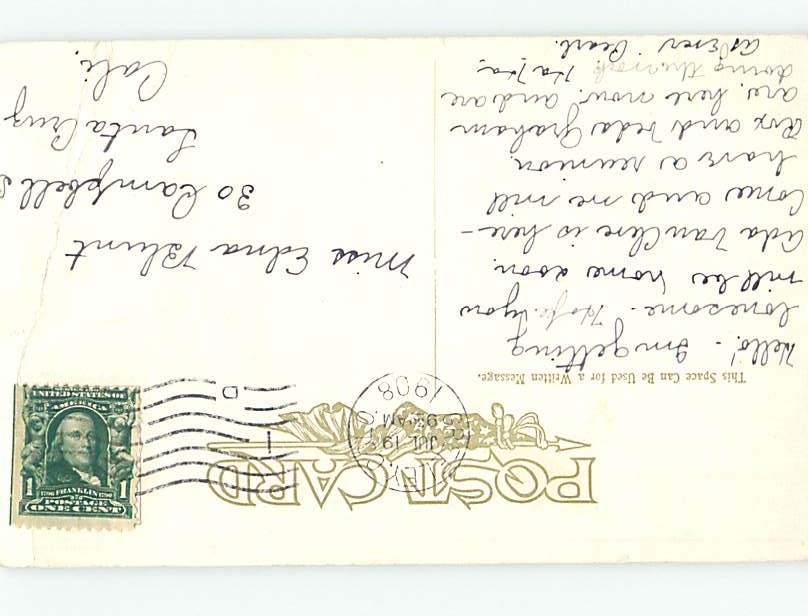 POST CARD
JUL 19
9 30 AM
1908
D
1
UNITED STATES OF
AMERICA
1706 FRANKLIN 1790
1 1
POSTAGE
ONE CENT
This Space Can Be Used for a Written Message.
Hello! - Im getting
lonesome. Hope you
will be home soon.
Ada Van Cleve is here -
Come and we will
have a reunion.
Rex and Veda Graham
are here now. and are
doing the rock. Ha Ha.
as Ever Pearl.
Miss Edna Blunt
30 Campbell S
Santa Cruz
Cali.